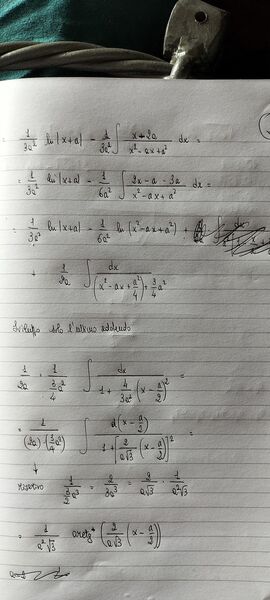 = 1/3a² ln|x+a| - 1/3a² ∫ x-2a / x²-ax+a² dx =
= 1/3a² ln|x+a| - 1/6a² ∫ 2x-a-3a / x²-ax+a² dx =
= 1/3a² ln|x+a| - 1/6a² ln(x²-ax+a²) +
+ 1/2a ∫ dx / (x²-ax+a²/4)+3/4 a²
Sviluppo solo l'ultimo addendo
1/2a · 1/(3/4 a²) ∫ dx / 1+4/3a² (x-a/2)² =
= 1/(2a)·(3/4 a²) ∫ d(x-a/2) / 1+[2/a√3 (x-a/2)]² =
↓
riscrivo 1/(3/2 a³) = 2/3a³ = 2/a√3 · 1/a²√3
= 1/a²√3 arctg (2/a√3 (x-a/2))